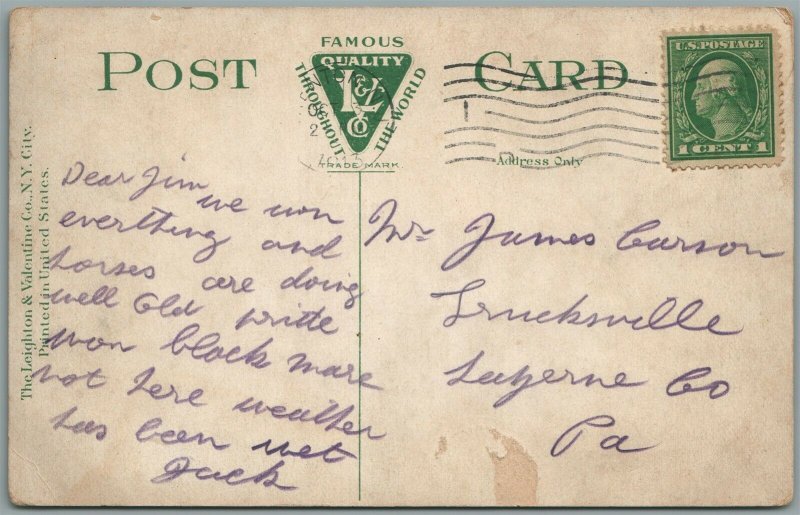 POST CARD
FAMOUS
QUALITY
THROUGHOUT
THE WORLD
L&V
CO
TRADE MARK.
U.S. POSTAGE
1 CENT 1
Address Only
The Leighton & Valentine Co., N.Y. City.
Printed in United States.
Dear Jim
we won
everthing and
horses are doing
well Old
won black mare
not here weather
has been wet
Jack
Mr James Carson
Trucksville
Luzerne Co
Pa